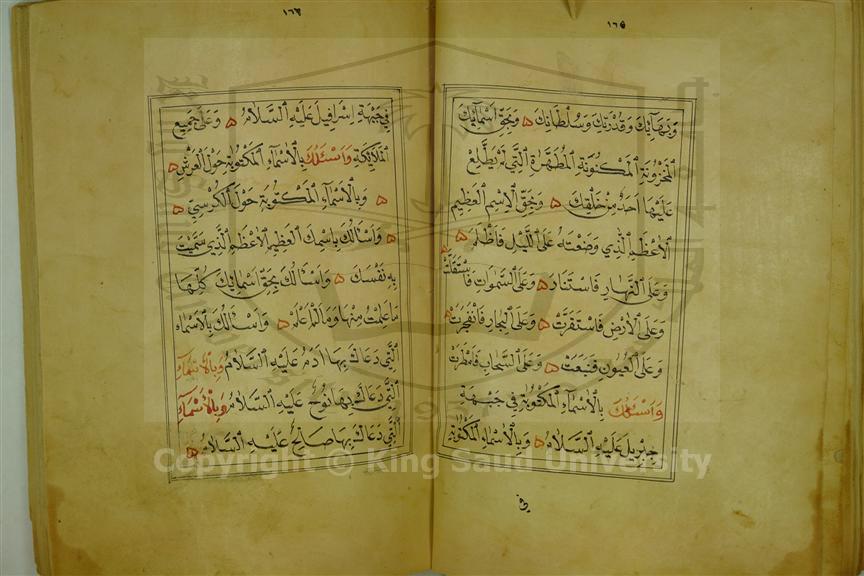 ١٦٥
وَبَهَائِكَ وَقُدْرَتِكَ وَسُلْطَانِكَ وَبِحَقِّ اَسْمَائِكَ
الْمَخْزُونَةِ الْمَكْنُونَةِ الْمُطَهَّرَةِ الَّتِي لَمْ يَطَّلِعْ
عَلَيْهَا اَحَدٌ مِنْ خَلْقِكَ وَبِحَقِّ الْاِسْمِ الْعَظِيمِ
الْاَعْظَمِ الَّذِي وَضَعْتَهُ عَلَى اللَّيْلِ فَاَظْلَمَ
وَعَلَى النَّهَارِ فَاسْتَنَارَ وَعَلَى السَّمٰوَاتِ فَاسْتَقَلَّتْ
وَعَلَى الْاَرْضِ فَاسْتَقَرَّتْ وَعَلَى الْبِحَارِ فَانْفَجَرَتْ
وَعَلَى الْعُيُونِ فَنَبَعَتْ وَعَلَى السَّحَابِ فَاَمْطَرَتْ
وَاَسْئَلُكَ بِالْاَسْمَاءِ الْمَكْتُوبَةِ فِي جَبْهَةِ
جِبْرِيلَ عَلَيْهِ السَّلَامُ وَبِالْاَسْمَاءِ الْمَكْتُوبَةِ
في
فِي جَبْهَةِ اِسْرَافِيلَ عَلَيْهِ السَّلَامُ وَعَلَى جَمِيعِ
الْمَلَائِكَةِ وَاَسْئَلُكَ بِالْاَسْمَاءِ الْمَكْتُوبَةِ حَوْلَ الْعَرْشِ
وَبِالْاَسْمَاءِ الْمَكْتُوبَةِ حَوْلَ الْكُرْسِيِّ
وَاَسْاَلُكَ بِاسْمِكَ الْعَظِيمِ الْاَعْظَمِ الَّذِي سَمَّيْتَ
بِهِ نَفْسَكَ وَاَسْاَلُكَ بِحَقِّ اَسْمَائِكَ كُلِّهَا
مَا عَلِمْتُ مِنْهَا وَمَا لَمْ اَعْلَمْ وَاَسْاَلُكَ بِالْاَسْمَاءِ
الَّتِي دَعَاكَ بِهَا اٰدَمُ عَلَيْهِ السَّلَامُ وَبِالْاَسْمَاءِ
الَّتِي دَعَاكَ بِهَا نُوحٌ عَلَيْهِ السَّلَامُ وَبِالْاَسْمَاءِ
الَّتِي دَعَاكَ بِهَا صَالِحٌ عَلَيْهِ السَّلَامُ
Copyright © King Saud University